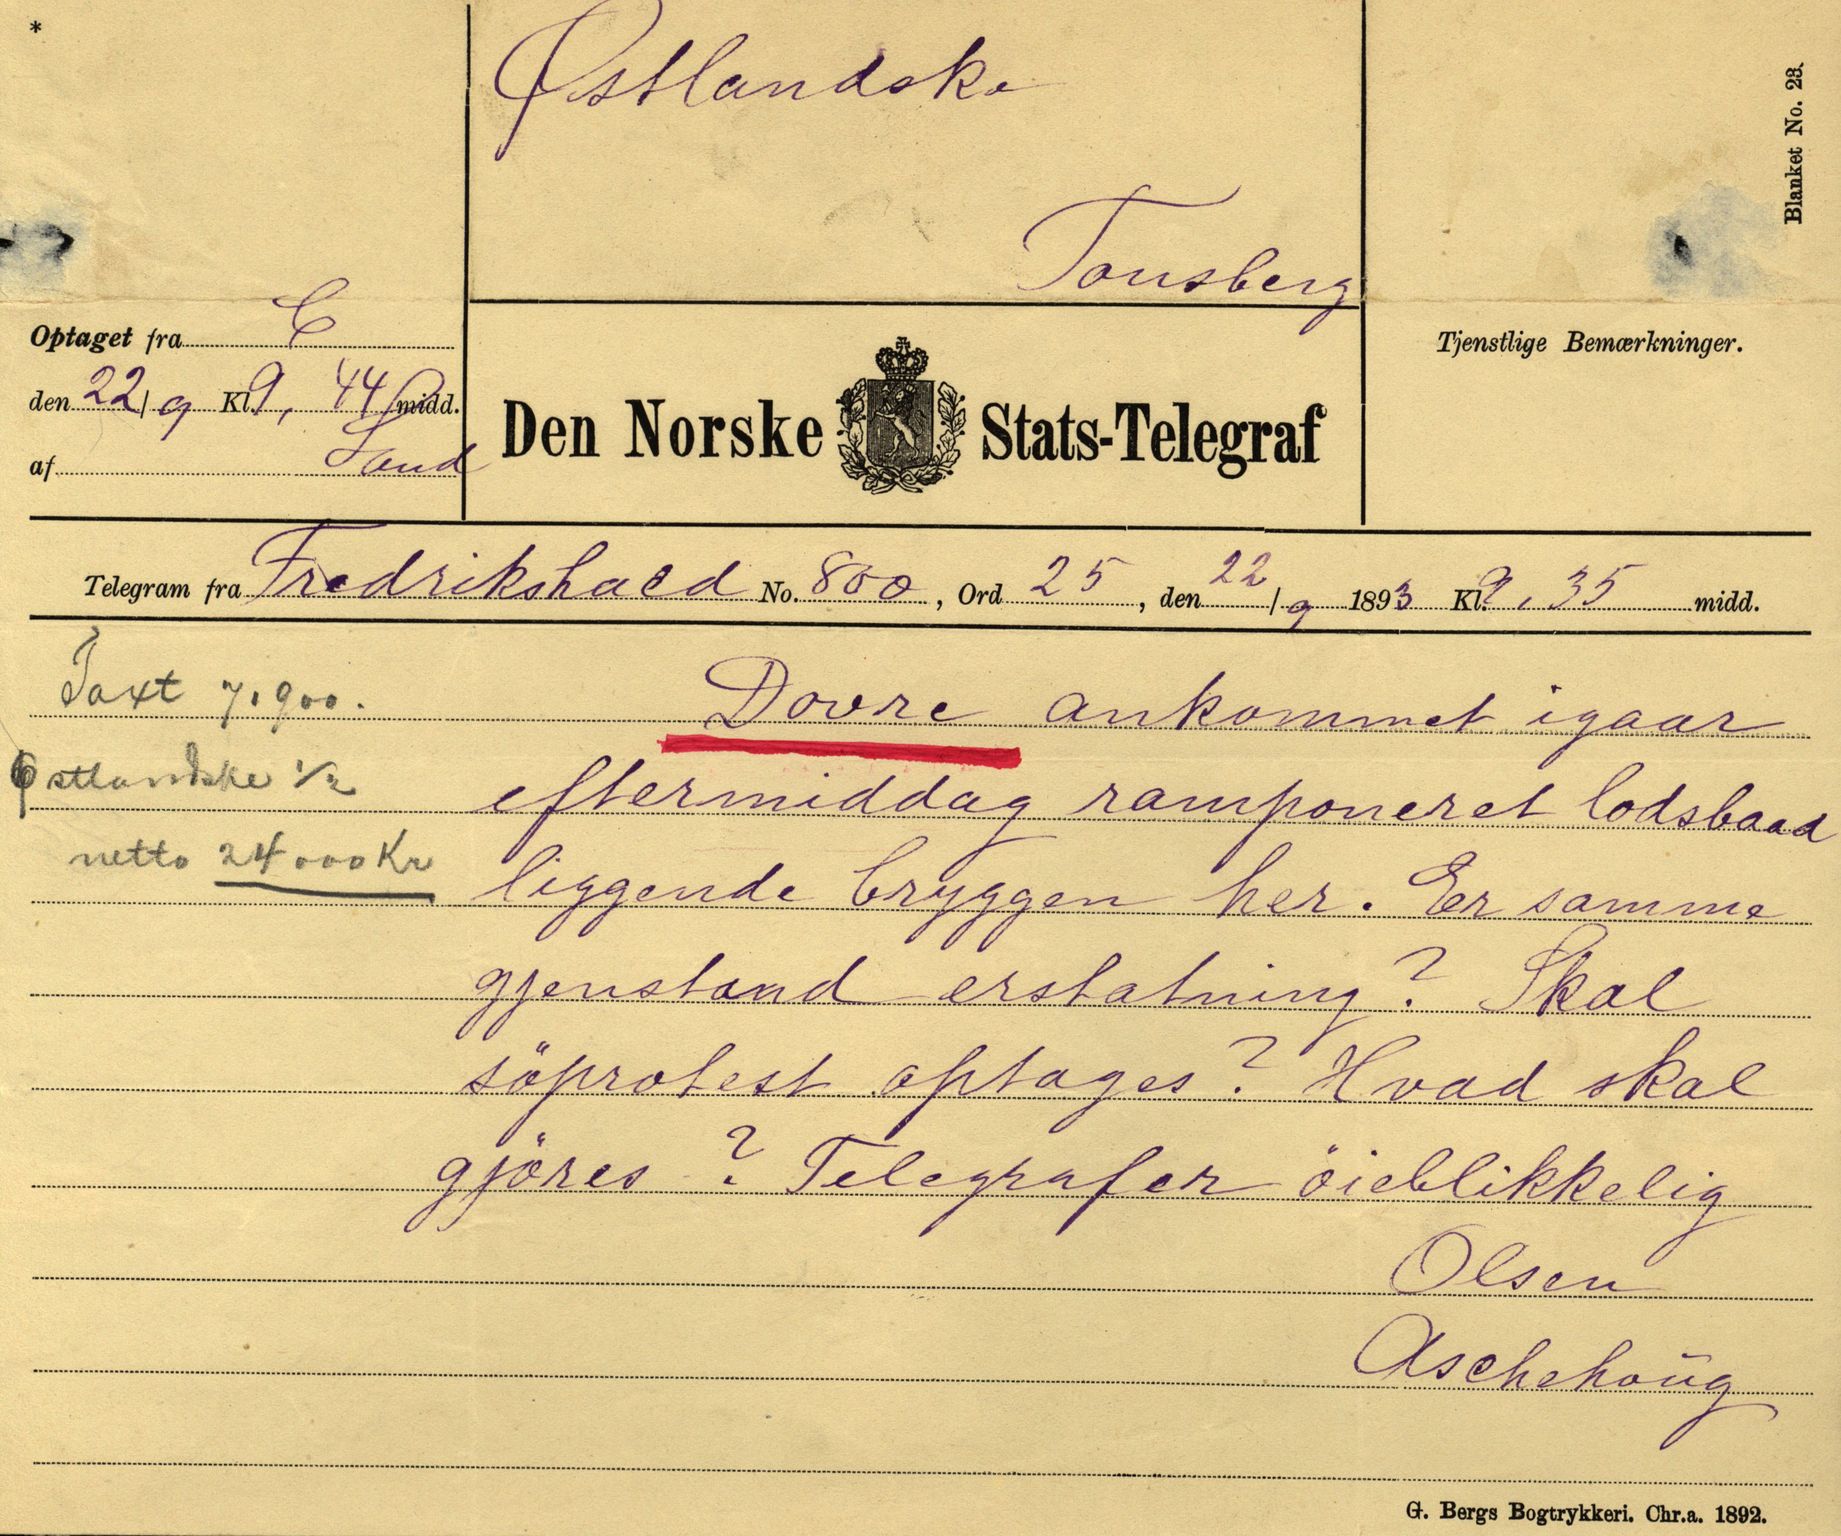 *
Østlandske
Tønsberg
Blanket No. 23.
Optaget fra C
den 22/9 Kl. 9, 44 f midd.
af Sand
Den Norske Stats-Telegraf
Tjenstlige Bemærkninger.
Telegram fra Fredrikshald No. 800, Ord 25, den 22/9 1893 Kl. 9,35 midd.
Taxt 7,900.
Østlandske 1/2
netto 24000 Kr
Dovre ankommet igaar
eftermiddag ramponeret lodsbaad
liggende bryggen her. Er samme
gjenstand erstatning? Skal
söprotest optages? Hvad skal
gjöres? Telegrafer öieblikkelig
Olsen
Aschehoug
G. Bergs Bogtrykkeri. Chr.a. 1892.